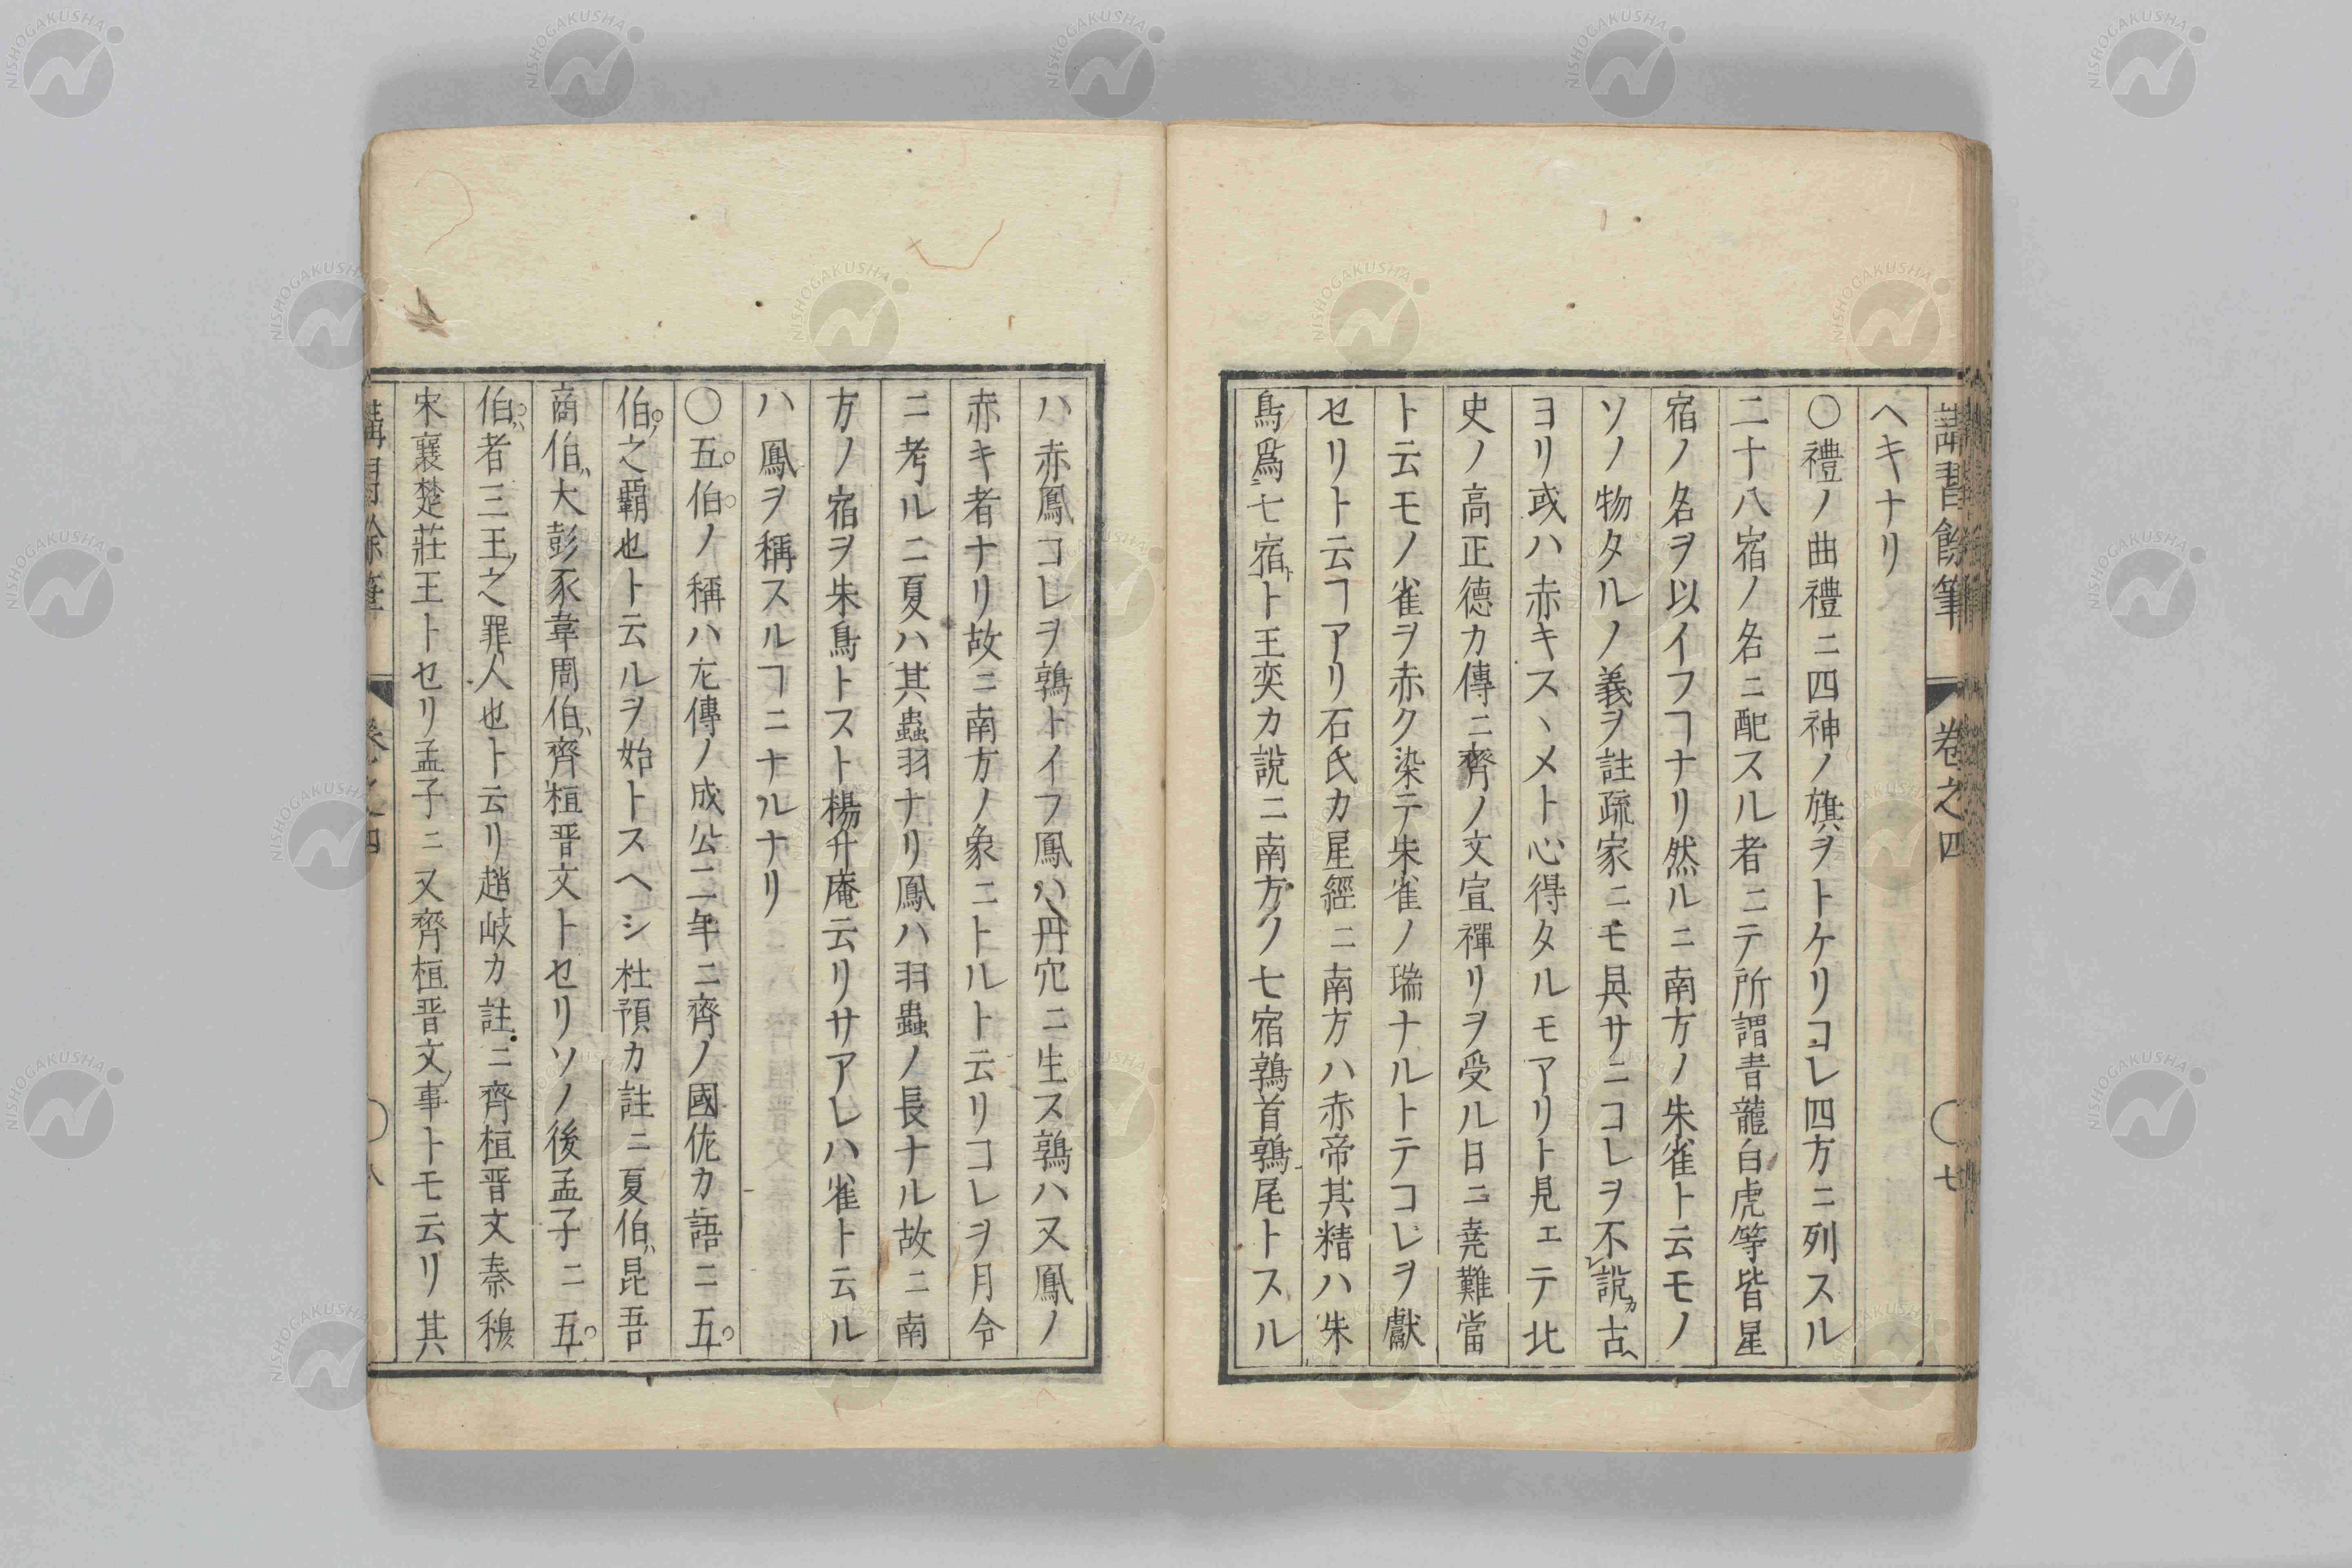 講習餘筆 卷之四 七
ヘキナリ
〇禮ノ曲禮ニ四神ノ旗ヲトケリコレ四方ニ列スル
二十八宿ノ名ニ配スル者ニテ所謂青龍白虎等皆星
宿ノ名ヲ以イフヿナリ然ルニ南方ノ朱雀ト云モノ
ソノ物タルノ義ヲ註疏家ニモ具サニコレヲ不レ說カ古ヘ
ヨリ或ハ赤キスヽメト心得タルモアリト見ェテ北
史ノ高正德カ傳ニ齊ノ文宣禪リヲ受ル日ニ堯難當
ト云モノ雀ヲ赤ク染テ朱雀ノ瑞ナルトテコレヲ獻
セリト云ヿアリ石氏カ星經ニ南方ハ赤帝其精ハ朱
鳥爲七宿ト王奕カ說ニ南方ノ七宿鶉首鶉尾トスル
ハ赤鳳コレヲ鶉トイフ鳳ハ丹穴ニ生ス鶉ハ又鳳ノ
赤キ者ナリ故ニ南方ノ象ニトルト云リコレヲ月令
ニ考ルニ夏ハ其蟲羽ナリ鳳ハ羽蟲ノ長ナル故ニ南
方ノ宿ヲ朱鳥トスト楊升庵云リサアレハ雀ト云ル
ハ鳳ヲ稱スルヿニナルナリ
〇五伯ノ稱ハ左傳ノ成公二年ニ齊ノ國佐カ語ニ五
伯ノ之覇也ト云ルヲ始トスヘシ杜預カ註ニ夏伯ハ昆吾
商伯ハ大彭豕韋周伯ハ齊桓晋文トセリソノ後孟子ニ五
伯ハ者三王ノ之罪人也ト云リ趙岐カ註ニ齊桓晋文秦穆
宋襄楚莊王トセリ孟子ニ又齊桓晋文ノ事トモ云リ其
卷之四 八